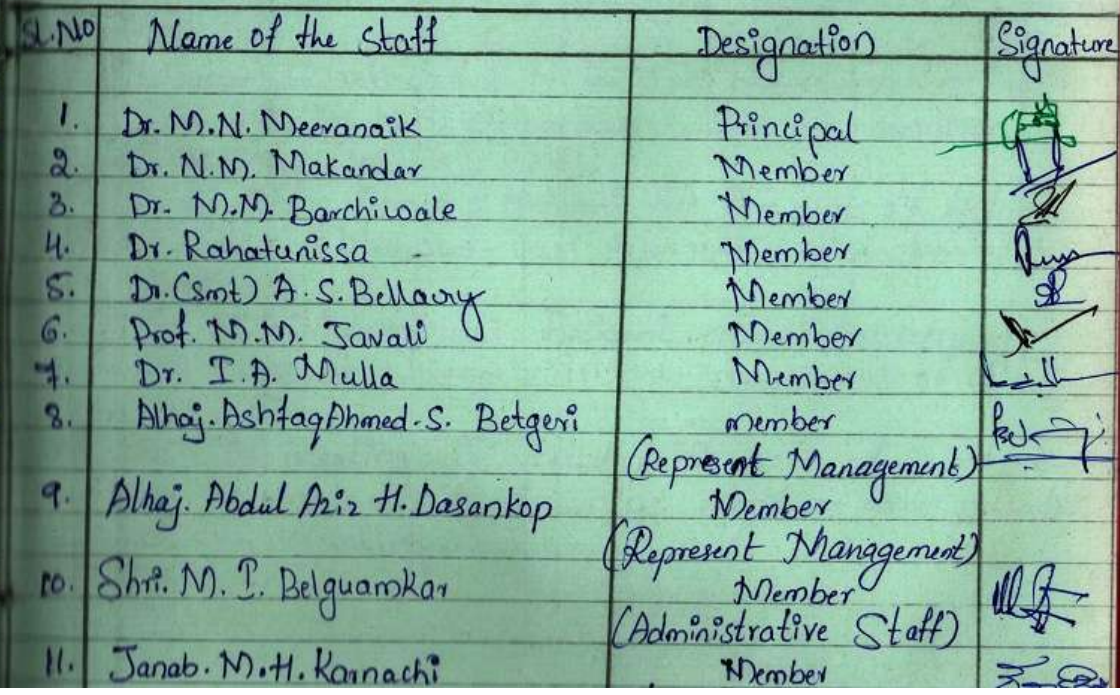 Sl.No Name of the Staff Designation Signature
1. Dr. M.N. Meeranaik Principal
2. Dr. N.M. Makandar Member
3. Dr. M.M. Barchiwale Member
4. Dr. Rahatunissa Member
5. Dr.(Smt) A.S. Bellary Member
6. Prof. M.M. Javali Member
7. Dr. I.A. Mulla Member
8. Alhaj. AshfaqAhmed.S. Betgeri member
(Represent Management)
9. Alhaj. Abdul Aziz H. Dasankop Member
(Represent Management)
10. Shri. M.I. Belguamkar Member
(Administrative Staff)
11. Janab. M.H. Karnachi Member